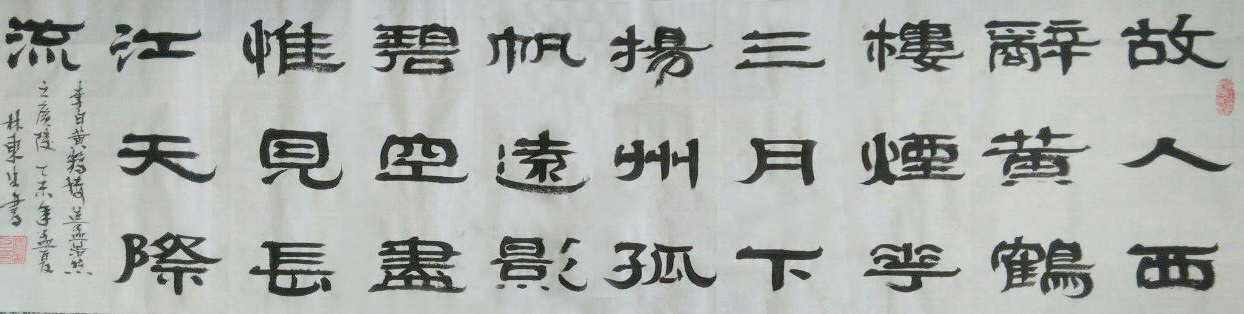 故人西
辭黃鶴
樓煙華
三月下
揚州孤
帆遠影
碧空盡
惟見長
江天際
流
李白黄鹤樓送孟浩然
之廣陵 乙未年孟夏
林東生書